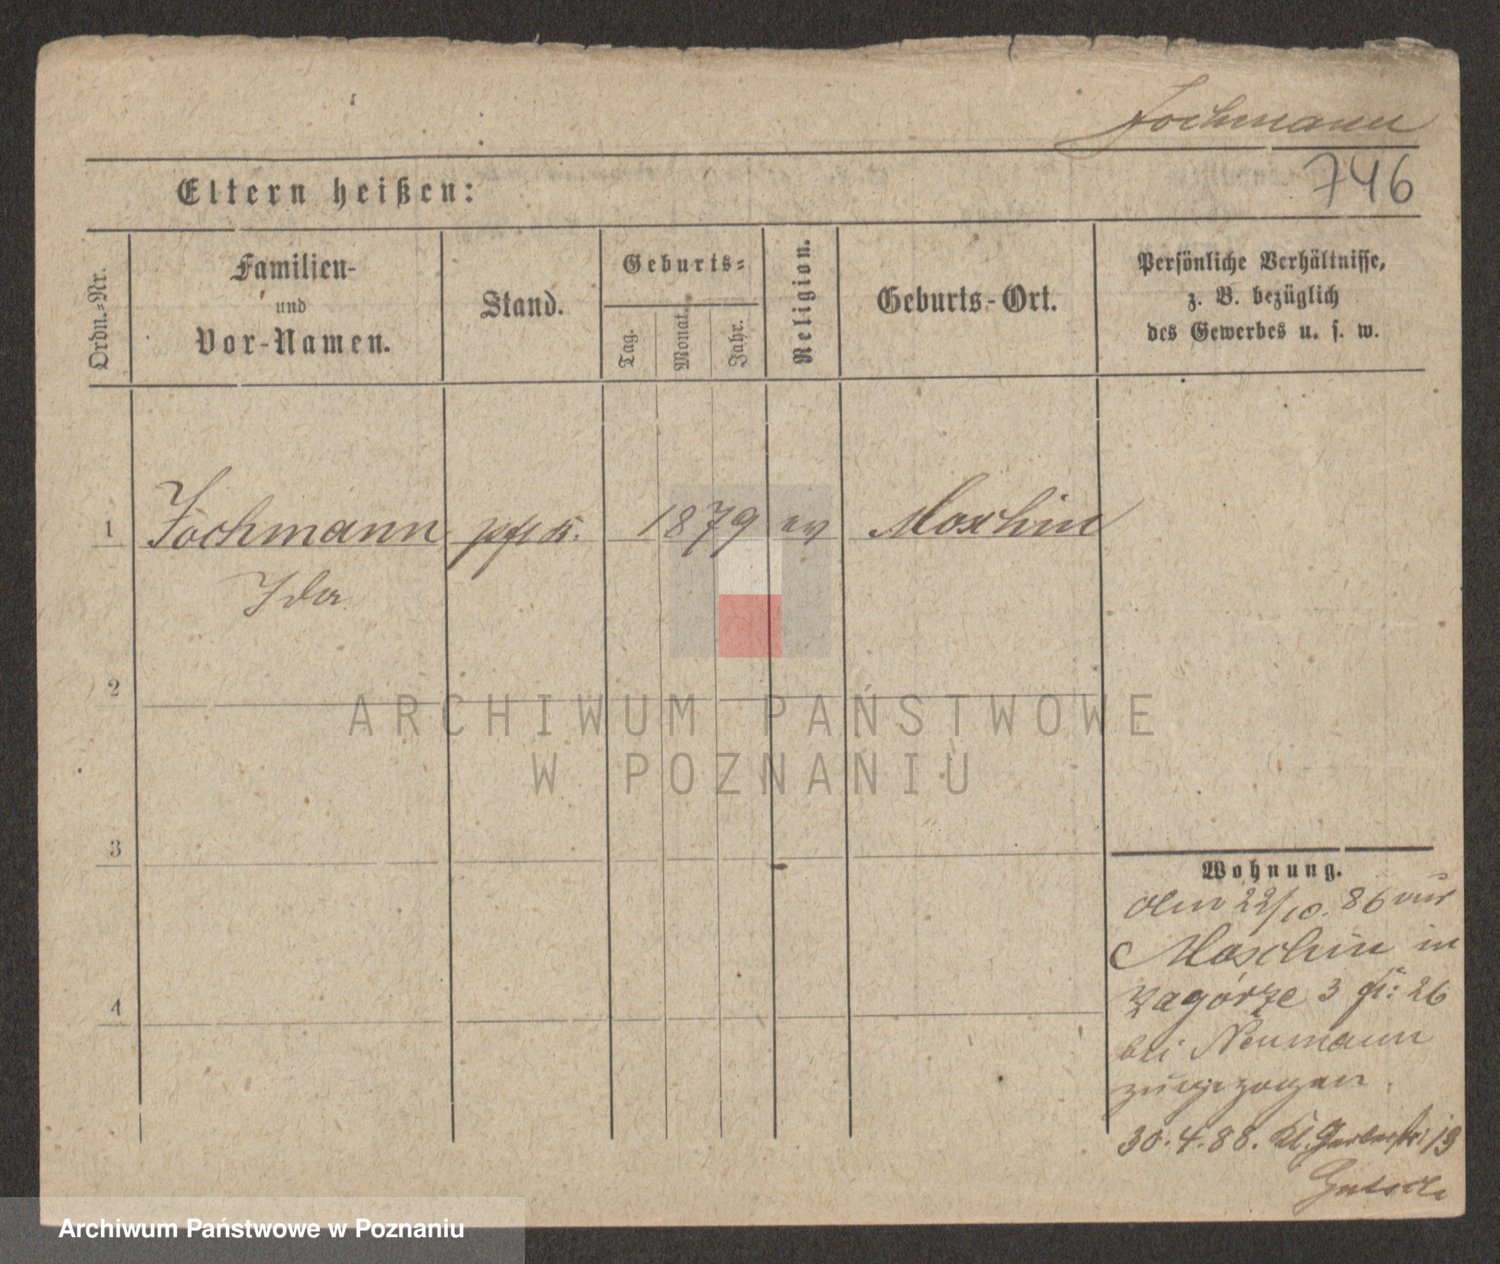 Jochmann
746
Eltern heißen:
Ordn.-Nr.
Familien-
und
Vor-Namen.
Stand.
Geburts-
Tag.
Monat.
Jahr.
Religion.
Geburts-Ort.
Persönliche Verhältnisse,
z. B. bezüglich
des Gewerbes u. s. w.
1 Jochmann pfl K. 1879 ev Moschin
Ida
2
3
4
Wohnung.
Am 22/10. 86 aus
Moschin in
Zagórze 3 fr: 26
bei Neumann
zugezogen.
30.4.88. Kl. Gerberstr: 13
ARCHIWUM PAŃSTWOWE
W POZNANIU
Archiwum Państwowe w Poznaniu